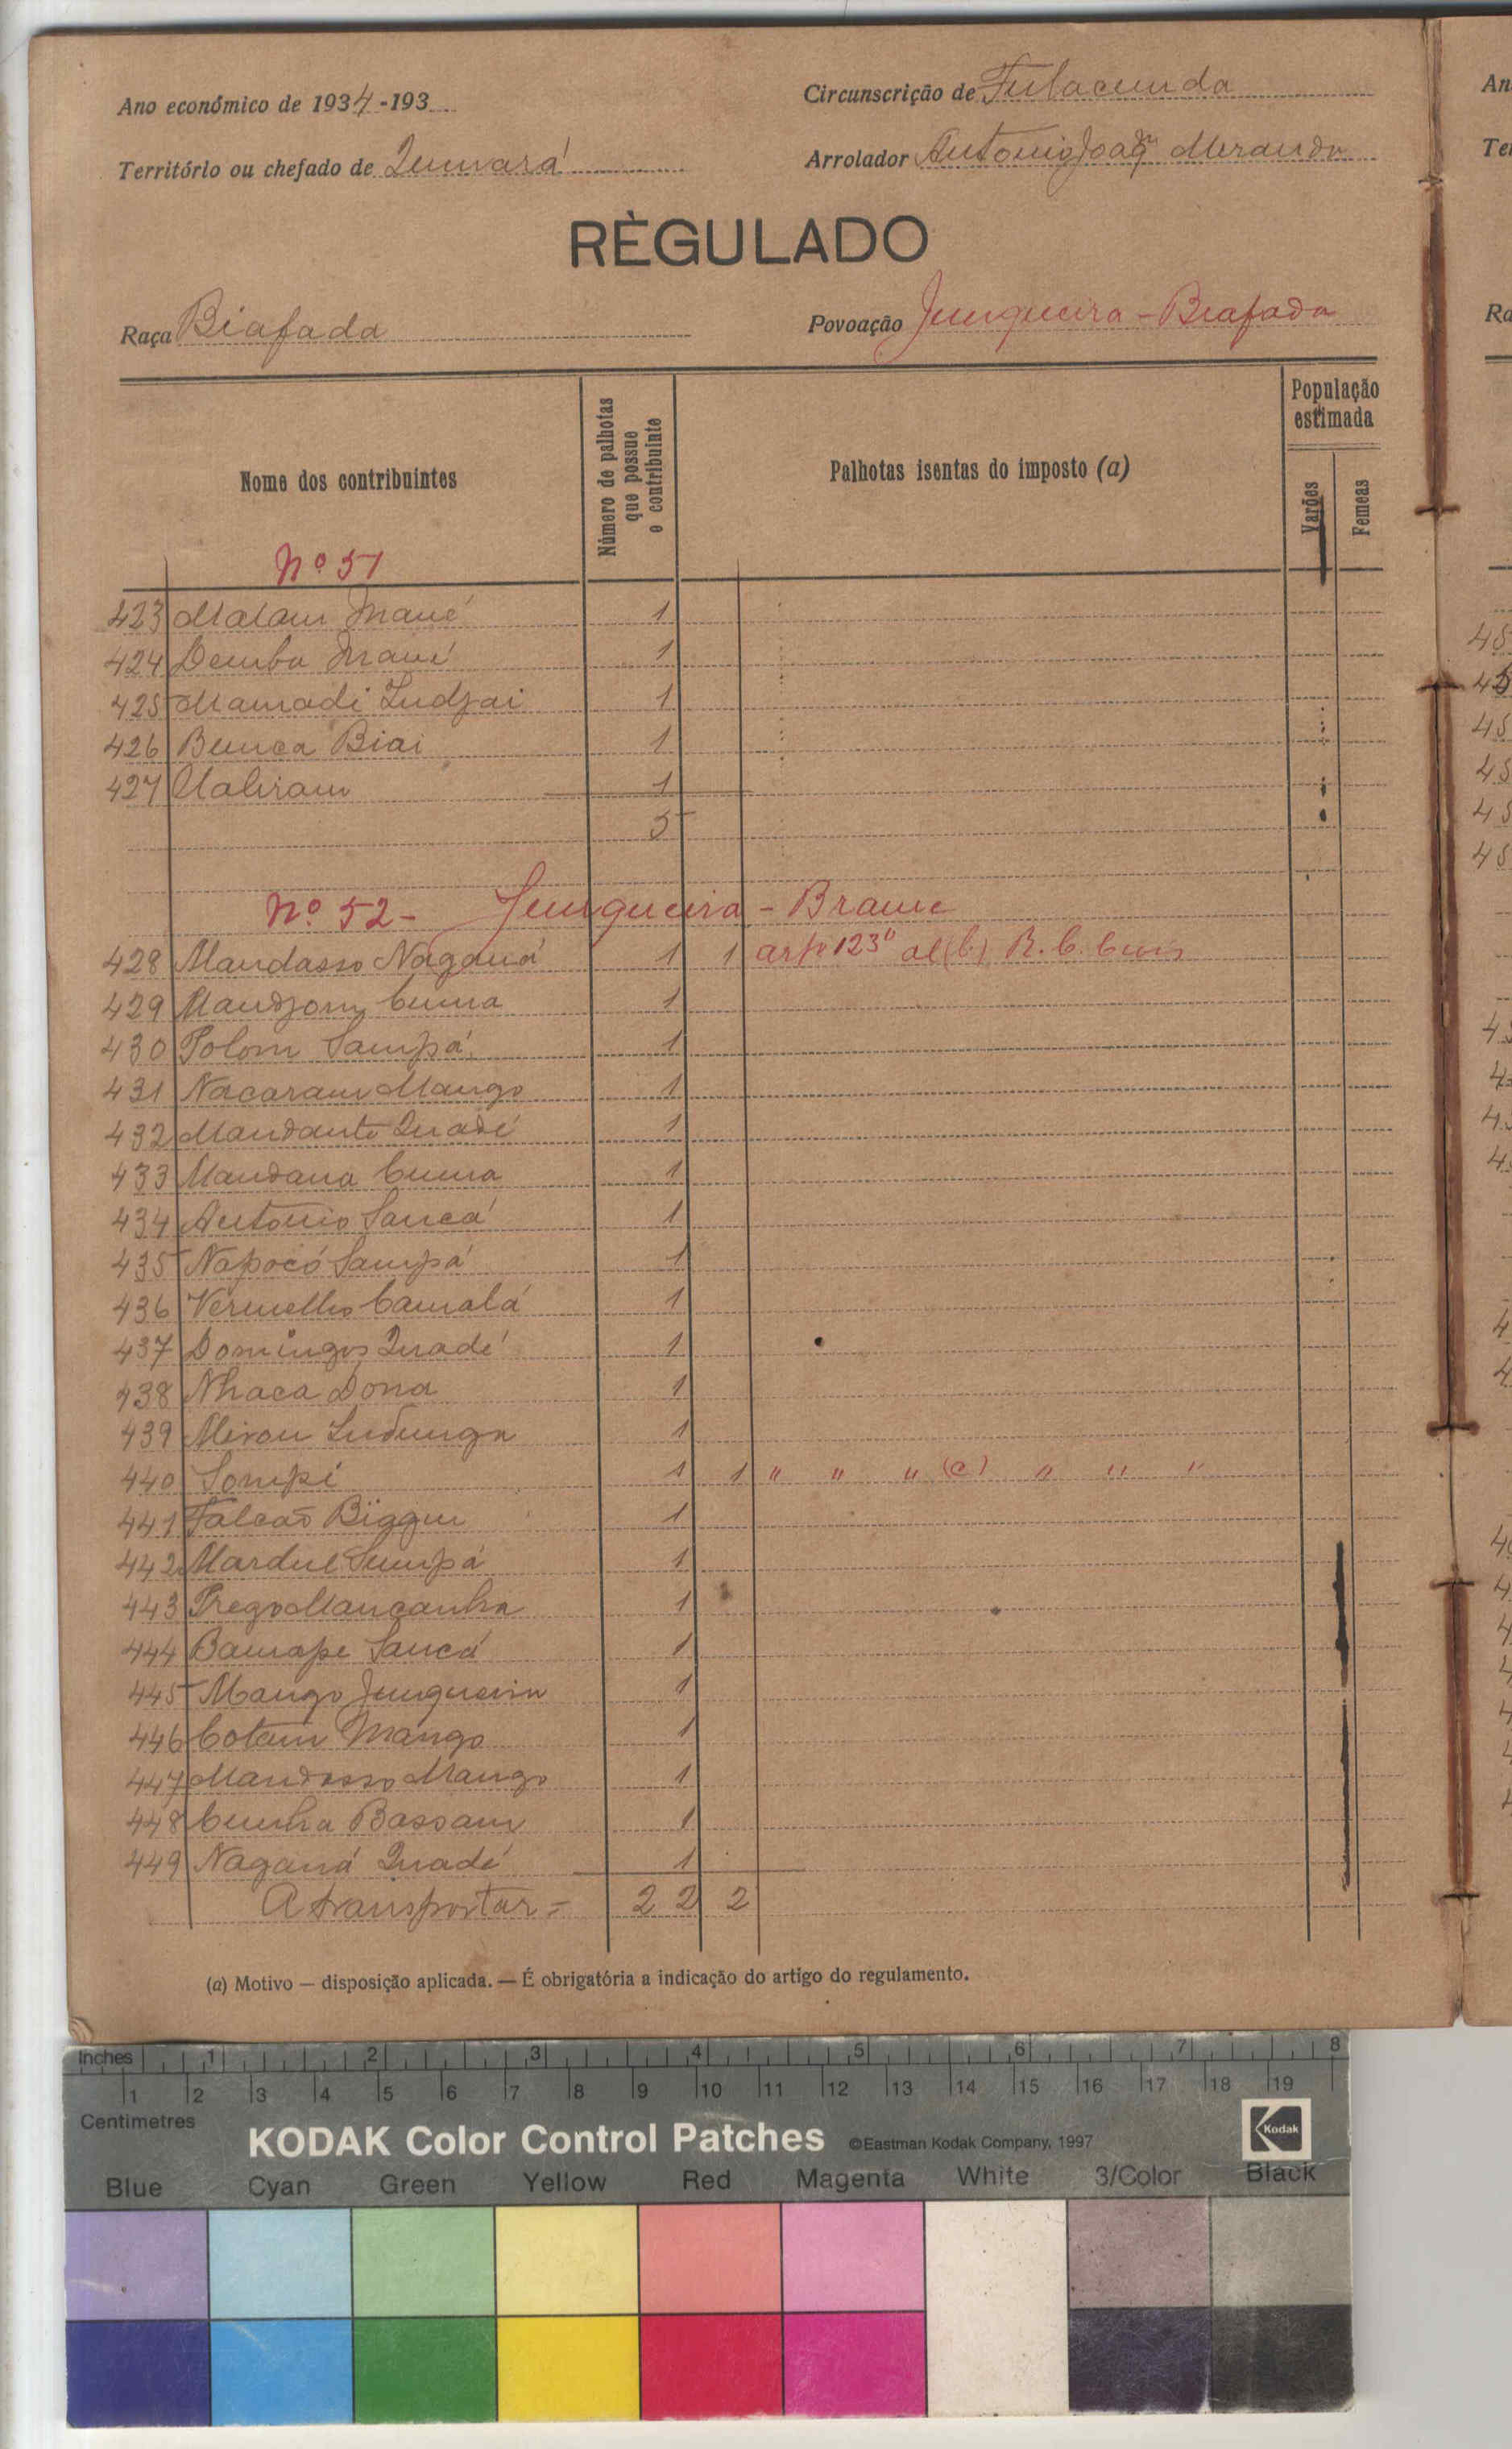 Ano económico de 1934-193
Circunscrição de Fulacunda
Território ou chefado de Quinará
Arrolador Antonio Joaqm Miranda
RÈGULADO
Raça Biafada
Povoação Junqueira - Biafada
Nome dos contribuintes
Número de palhotas que possue o contribuinte
Palhotas isentas do imposto (a)
População estimada
Varões
Femeas
Nº 51
423 Malam Mané 1
424 Demba Mané 1
425 Mamadi Indjai 1
426 Bunca Biai 1
427 Ualiram 1
5
Nº 52 - Junqueira - Brame
428 Mandasso Naganá 1 1 artº 123º al (b) R. C. Civis
429 Mandjom Cuma 1
430 Polom Sampá 1
431 Nacaram Mango 1
432 Mandante Quadé 1
433 Mandana Cuma 1
434 Antonio Sancá 1
435 Napocó Sampá 1
436 Vermelho Camalá 1
437 Domingos Quadé 1
438 Nhaca Dona 1
439 Miron Indunga 1
440 Sompi 1 1 " " " (c) " " "
441 Falcão Biggur 1
442 Mardul Sumpá 1
443 Prego Mancanha 1
444 Bamape Sancá 1
445 Mango Junqueira 1
446 Cotam Mango 1
447 Mandasso Mango 1
448 Cunha Bassam 1
449 Naganá Quadé 1
A transportar = 22 2
(a) Motivo — disposição aplicada. — É obrigatória a indicação do artigo do regulamento.
Inches 1 2 3 4 5 6 7 8
1 2 3 4 5 6 7 8 9 10 11 12 13 14 15 16 17 18 19
Centimetres
KODAK Color Control Patches ©Eastman Kodak Company, 1997 Kodak
Blue Cyan Green Yellow Red Magenta White 3/Color Black